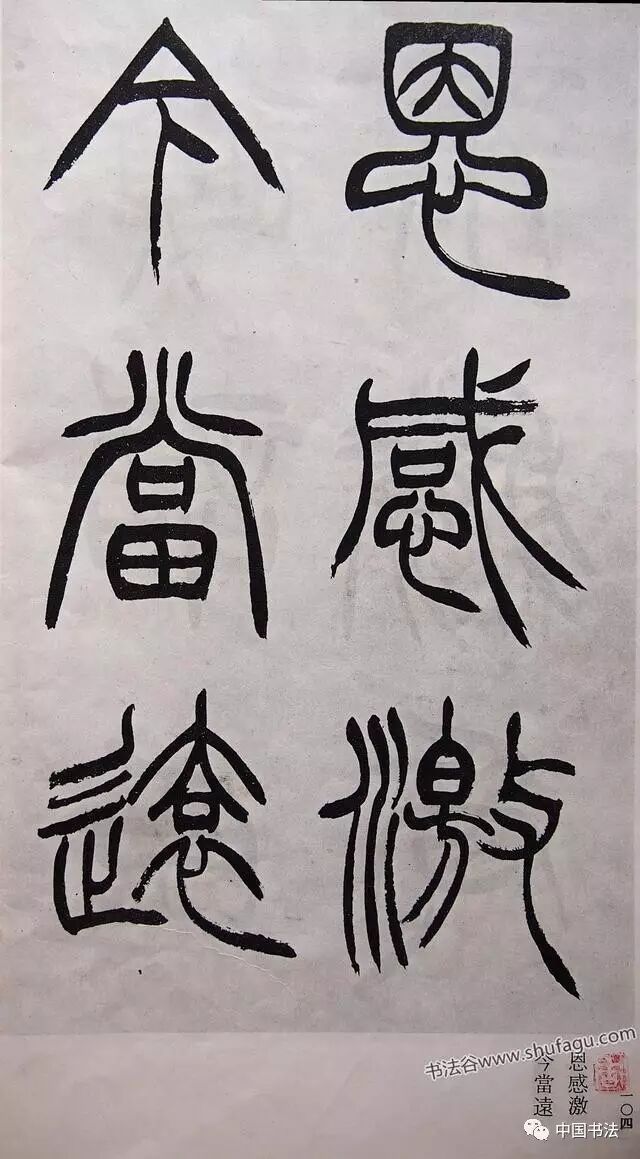 恩感激
今當遠
书法谷www.shufagu.com
恩感激
今當遠
一〇四
中国书法